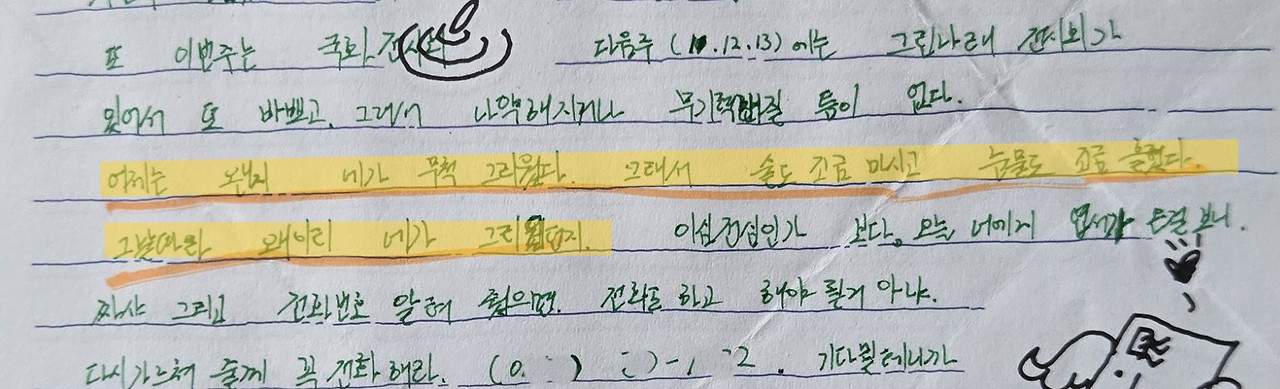 또 이번주는 국화 전시회 다음주 (11.12.13)에는 그린나래 전시회가
있어서 또 바쁘고, 그래서 나약해지거나 무기력해질 틈이 없다.
어제는 왠지 네가 무척 그리웠다. 그래서 술도 조금 마시고 눈물도 조금 흘렸다.
그날따라 왜이리 네가 그리웁던지. 이심전심인가 보다. 오늘 너에게 엽서가 온걸 보니.
짜샤 그리고 전화번호 알려 줬으면 전화를 하고 해야 될거 아냐.
다시 가르쳐 줄께 꼭 전화해라. 기다릴테니까